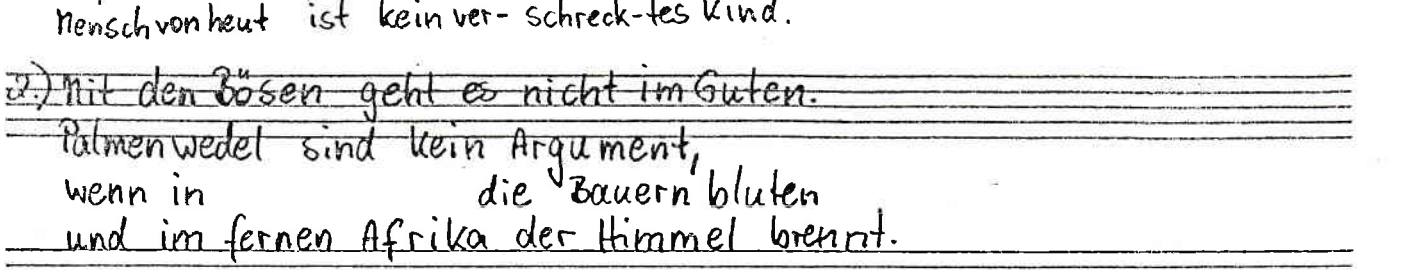 Mensch von heut ist kein ver- schreck-tes Kind.
2.) Mit den Bösen geht es nicht im Guten.
Palmenwedel sind kein Argument,
wenn in die Bauern bluten
und im fernen Afrika der Himmel brennt.